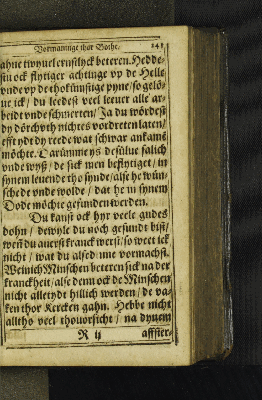 Vormaninge thor Bothe. 141
ahne twyuel ernstlyck beteren. Hedde-
stu ock flytiger achtinge vp de Helle
vnde vp de thokünfftige pyne / so gelö-
ue ick / du leedest veel leeuer alle ar-
beidt vnde schmerten / Ja du wördest
dy dörchvth nichtes vordreten laten /
efft ydt dy reede wat schwar ankame
möchte. Darümme ys desülue salich
vnde wyß / de sick men beflytiget / in
synem leuende tho synde / alse he wün-
schede vnde wolde / dat he in synem
Dode möchte gefunden werden.
Du kanst ock hyr veele gudes
dohn / dewyle du noch gesundt bist /
weñ du auerst kranck werst / so weet ick
nicht / wat du alsedenne vormachst.
Weinich Minschen beteren sick na der
kranckheit / alse denn ock de Minschen
nicht alletydt hillich werden / de va-
ken thor Kercken gahn. Hebbe nicht
alltho veel thouorsicht / na dynem
R ij affster-